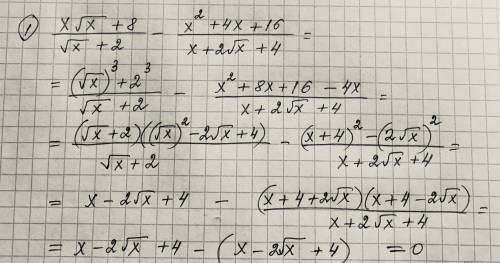 ① (x√x + 8)/(√x + 2) − (x² + 4x + 16)/(x + 2√x + 4) =
= ((√x)³ + 2³)/(√x + 2) − (x² + 8x + 16 − 4x)/(x + 2√x + 4) =
= ((√x + 2)((√x)² − 2√x + 4))/(√x + 2) − ((x + 4)² − (2√x)²)/(x + 2√x + 4) =
= x − 2√x + 4 − ((x + 4 + 2√x)(x + 4 − 2√x))/(x + 2√x + 4) =
= x − 2√x + 4 − (x − 2√x + 4) = 0